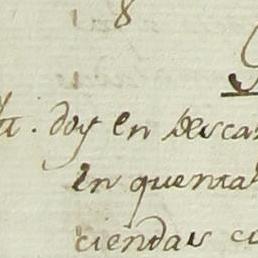 8
doy en Desca
en quenta
ciendas c